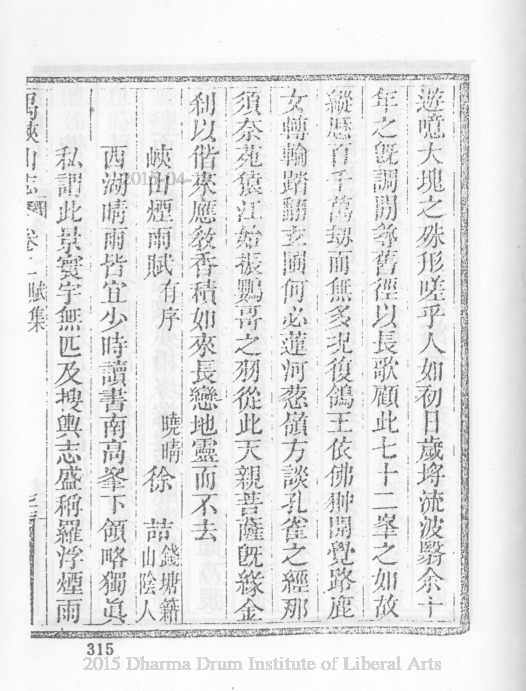 遊噫大塊之殊形嗟乎人如初日歲將流波翳余十
年之旣調開尋舊徑以長歌顧此七十二峯之如故
縱歷百千萬刼而無多况復鴿王依佛狮開覺路鹿
女轉輪踏翻玄圃何必蓮河慈嶺方談孔雀之經那
須奈苑猿江始振鸚哥之羽從此天親菩薩旣緣金
刹以偕來應敎香積如來長戀地靈而不去
峽山煙雨賦有序
曉晴徐喆錢塘籍山陰人
西湖晴雨皆宜少時讀書南高峯下領略獨眞
私謂此景寰宇無匹及搜輿志盛稱羅浮煙雨
峽山志 卷二賦集
315
2015 Dharma Drum Institute of Liberal Arts